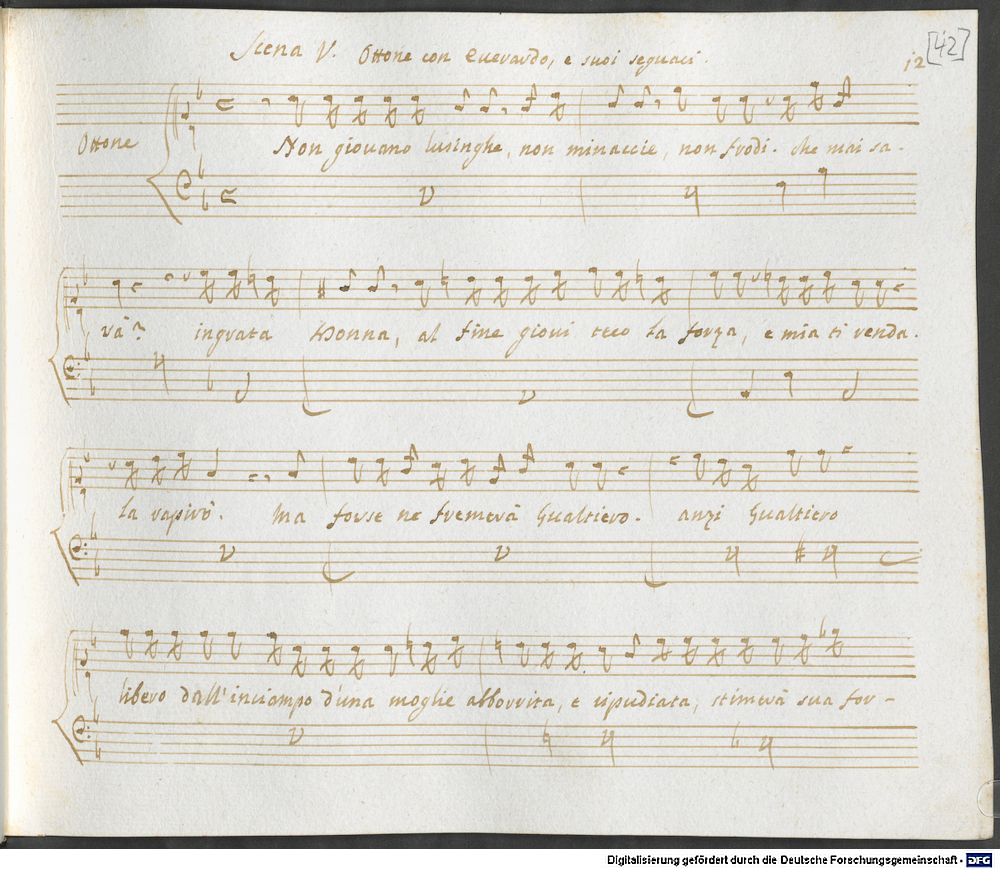 [42]
12
Scena V. Ottone con Everardo, e suoi seguaci.
Ottone
Non giovano lusinghe, non minaccie, non frodi. che mai sa-
rà? ingrata Donna, al fine giovi teco la forza, e mia ti renda.
la rapirò. Ma forse ne fremerà Gualtiero. anzi Gualtiero
libero dall'inciampo d'una moglie abborrita, e ripudiata, stimerà sua for-
Digitalisierung gefördert durch die Deutsche Forschungsgemeinschaft - DFG